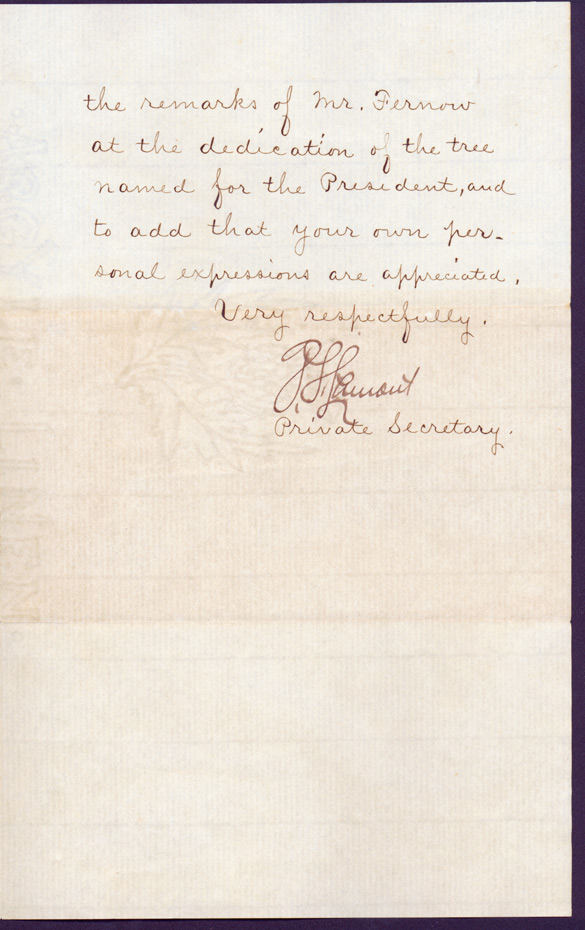 the remarks of Mr. Fernow
at the dedication of the tree
named for the President, and
to add that your own per-
sonal expressions are appreciated.
Very respectfully.
Lamont
Private Secretary.